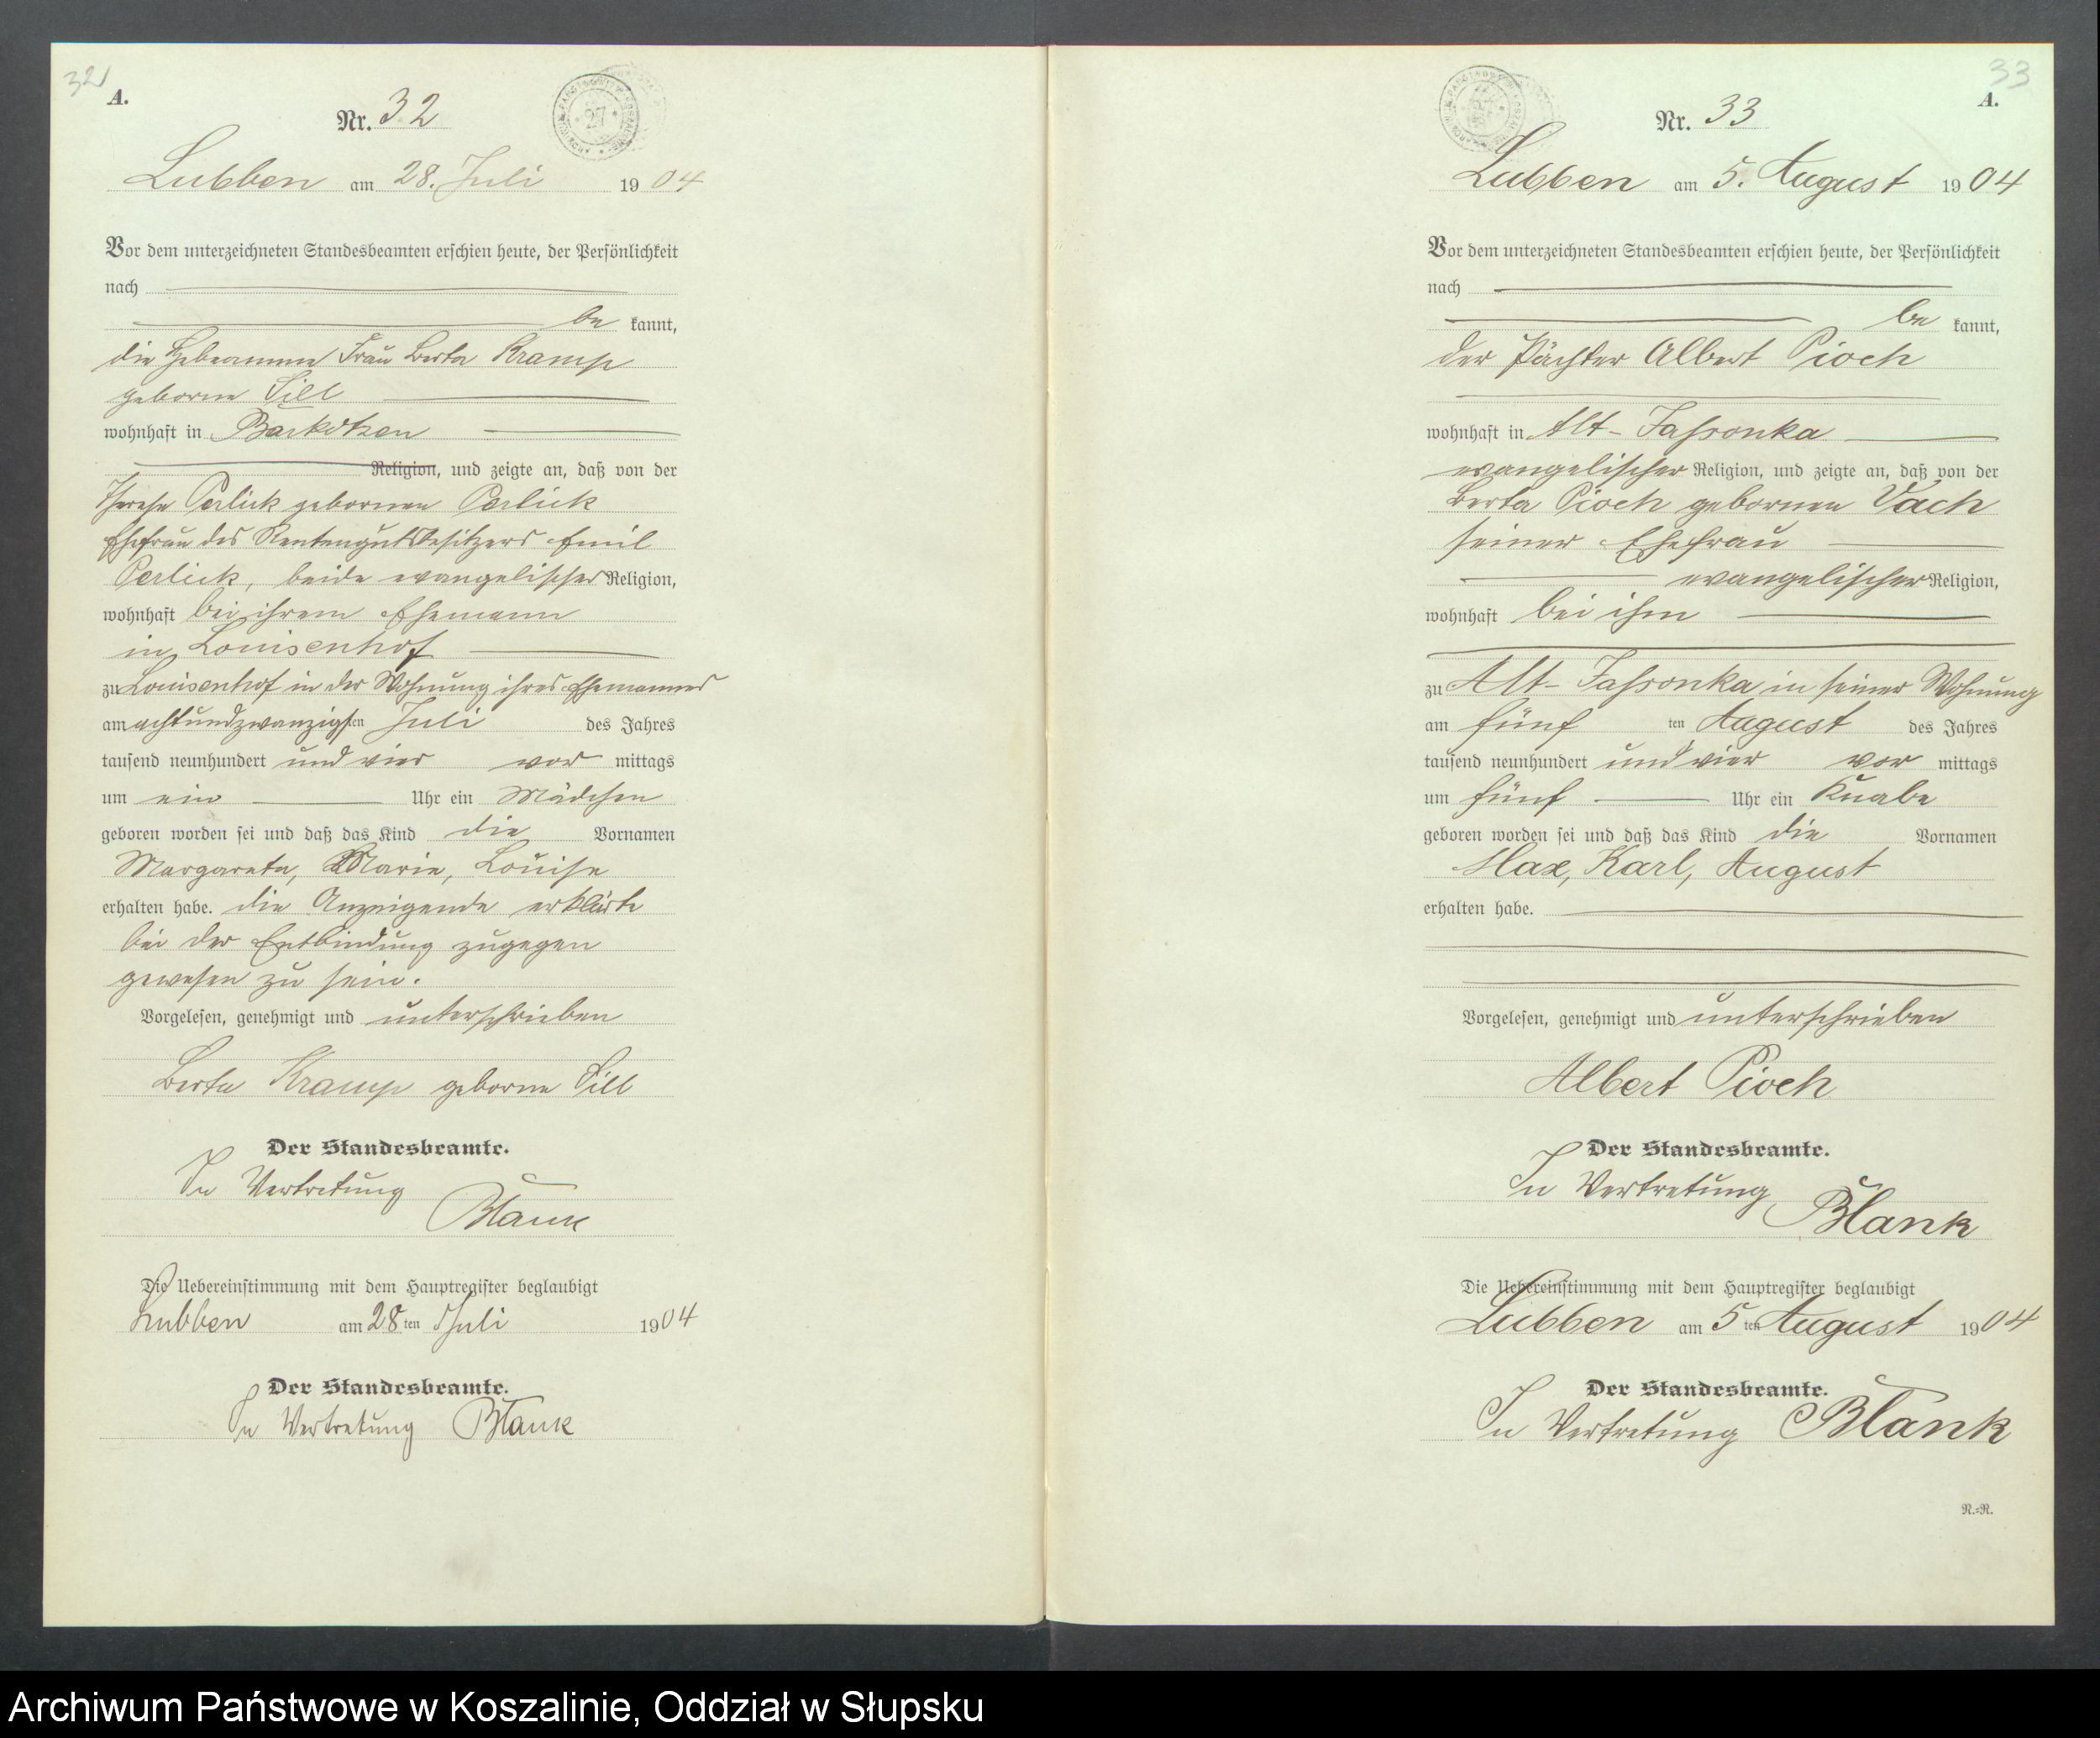 32
A.
Nr. 32
27
Lubben am 28. Juli 1904
Vor dem unterzeichneten Standesbeamten erschien heute, der Persönlichkeit
nach
be kannt,
die Hebeamme Frau Berta Kramp
geborne Sill
wohnhaft in Barkotzen
Religion, und zeigte an, daß von der
Therese Perlick gebornen Perlick
Ehefrau des Rentengutsbesitzers Emil
Perlick, beide evangelischer Religion,
wohnhaft bei ihrem Ehemann
in Louisenhof
zu Louisenhof in der Wohnung ihres Ehemannes
am achtundzwanzigsten Juli des Jahres
tausend neunhundert und vier vor mittags
um ein Uhr ein Mädchen
geboren worden sei und daß das Kind die Vornamen
Margareta, Marie, Louise
erhalten habe. die Anzeigende erklärte
bei der Entbindung zugegen
gewesen zu sein.
Vorgelesen, genehmigt und unterschrieben
Berta Kramp geborne Sill
Der Standesbeamte.
In Vertretung
Blank
Die Uebereinstimmung mit dem Hauptregister beglaubigt
Lubben am 28 ten Juli 1904
Der Standesbeamte.
In Vertretung Blank
33
A.
Nr. 33
Lubben am 5. August 1904
Vor dem unterzeichneten Standesbeamten erschien heute, der Persönlichkeit
nach
be kannt,
der Pächter Albert Pioch
wohnhaft in Alt-Jassonka
evangelischer Religion, und zeigte an, daß von der
Berta Pioch gebornen Vach
seiner Ehefrau
evangelischer Religion,
wohnhaft bei ihm
zu Alt-Jassonka in seiner Wohnung
am fünf ten August des Jahres
tausend neunhundert und vier vor mittags
um fünf Uhr ein Knabe
geboren worden sei und daß das Kind die Vornamen
Max, Karl, August
erhalten habe.
Vorgelesen, genehmigt und unterschrieben
Albert Pioch
Der Standesbeamte.
In Vertretung
Blank
Die Uebereinstimmung mit dem Hauptregister beglaubigt
Lubben am 5 ten August 1904
Der Standesbeamte.
In Vertretung Blank
R.=R.
Archiwum Państwowe w Koszalinie, Oddział w Słupsku